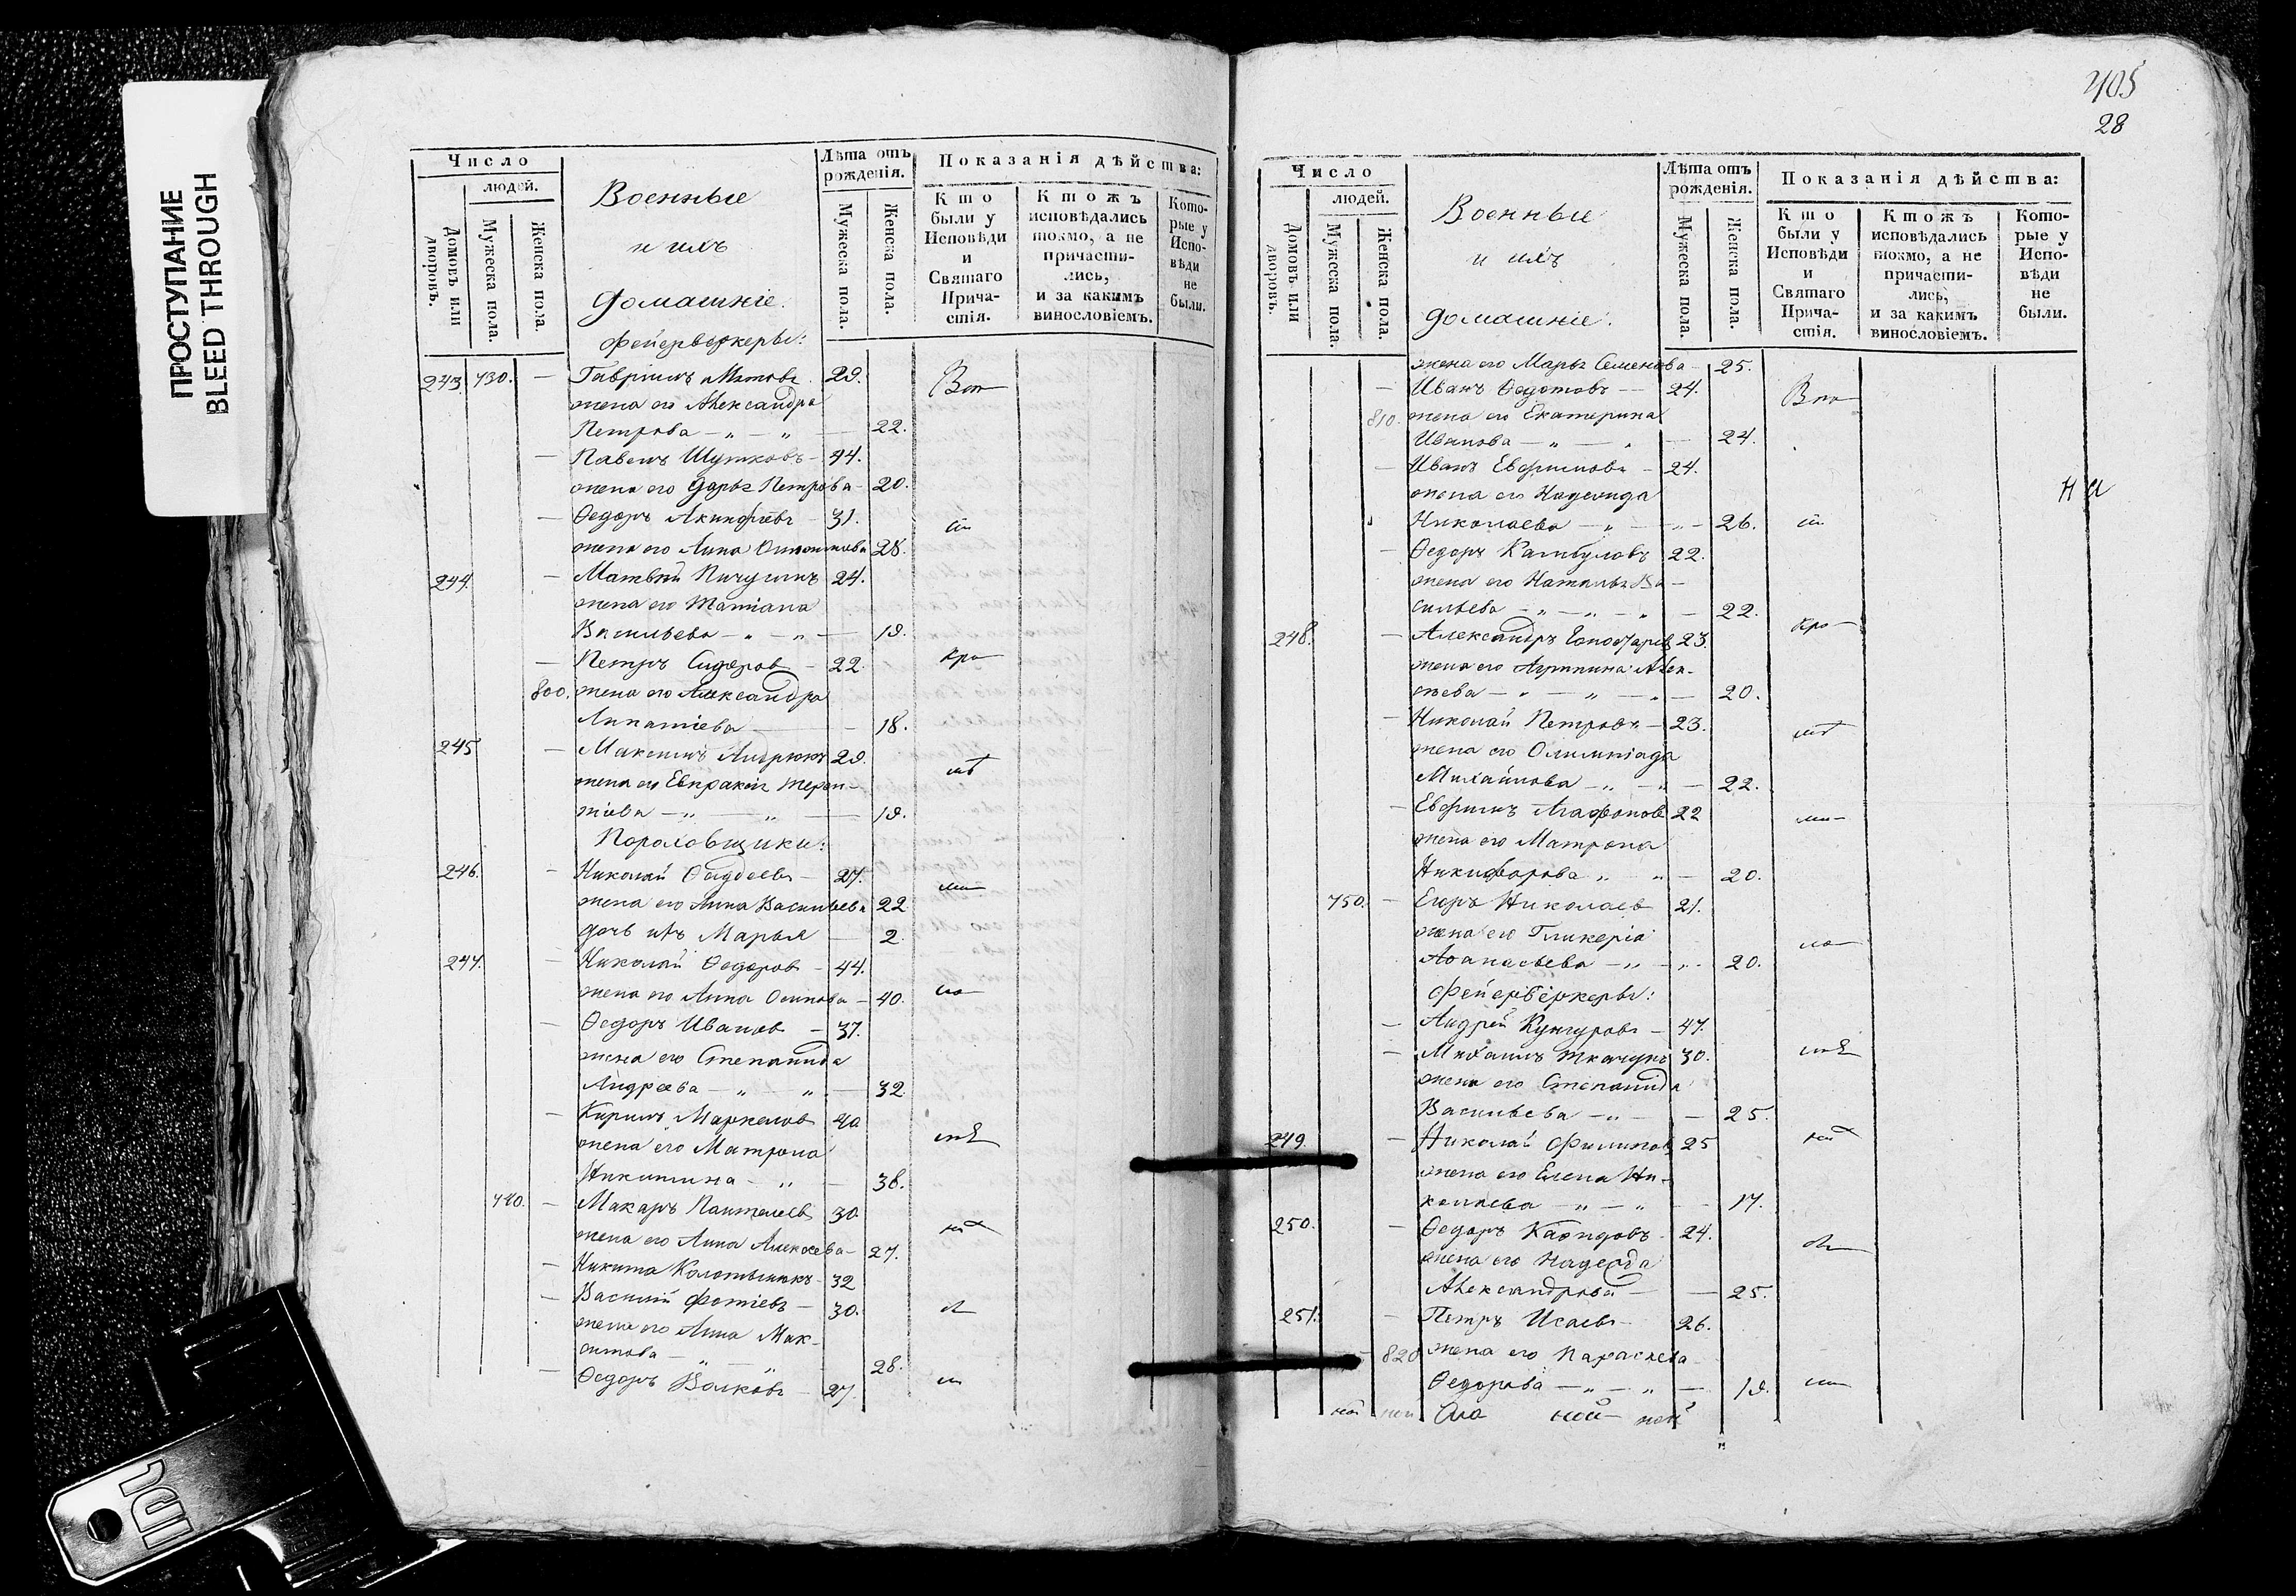 ПРОСТУПАНИЕ
BLEED THROUGH
Число
людей.
Домовъ или дворовъ.
Мужеска пола.
Женска пола.
Военные
и ихъ
домашніе.
Лѣта отъ
рожденія.
Мужеска пола.
Женска пола.
Показанія дѣйства:
Кто
были у
Исповѣди
и
Святаго
Прича-
стія.
Ктожъ
исповѣдались
токмо, а не
причасти-
лись,
и за какимъ
винословіемъ.
Кото-
рые у
Испо-
вѣди
не
были.
фейерверкеры:
243. 730. — Гавріилъ 29.
жена его Александра
Петрова — „ — „ — 22.
— Павелъ Шутковъ — 44.
жена его Дарья Петрова — 20.
— Ѳедоръ Акинфіевъ — 31.
жена его Анна 28.
244. — Матвѣй Пичугинъ 24.
жена его Татіана
Васильева — „ — „ — 19.
— Петръ Сидоровъ — 22.
800. жена его Александра
Ипатіева — 18.
245 — Максимъ 29.
жена его Евпраксія Терен-
тіева — „ — „ — 19.
Пороховщики:
246. — Николай Ѳаддеевъ — 27.
жена его Анна Васильева 22
дочь ихъ Марья — 2.
247. — Николай Ѳедоровъ — 44.
жена его Анна Осипова — 40.
— Ѳедоръ Ивановъ — 37.
жена его Степанида
Андреева — „ „ — 32.
— Кирилъ Маркеловъ 40
жена его Матрона
Никитина — „ — 38.
740. — Макаръ Пантелеевъ 30
жена его Анна Алексеева — 27.
— Никита 32
— Василій Фотіевъ — 30.
жена его Анна Мак-
симова — „ „ 28.
— Ѳедоръ Волковъ — 27.
405
28
Число
людей.
Домовъ или дворовъ.
Мужеска пола.
Женска пола.
Военные
и ихъ
домашніе.
Лѣта отъ
рожденія.
Мужеска пола.
Женска пола.
Показанія дѣйства:
Кто
были у
Исповѣди
и
Святаго
Прича-
стія.
Ктожъ
исповѣдались
токмо, а не
причасти-
лись,
и за какимъ
винословіемъ.
Кото-
рые у
Испо-
вѣди
не
были.
жена его Марья Семенова — 25.
— Иванъ Ѳедотовъ — 24.
810. жена его Екатерина
Иванова — „ — „ — 24.
— Иванъ Евфимовъ — 24.
жена его Надежда
Николаева — „ — „ — 26.
— Ѳедоръ 22.
жена его Наталья Ва-
сильева — „ — „ — „ — 22.
248. — Александръ 23.
жена его Агрипина Алек-
сѣева — „ — „ — „ — 20.
— Николай Петровъ — 23.
жена его Олимпіада
Михайлова — „ — „ — 22.
— Евфимъ Агафоновъ 22
жена его Матрона
Никифорова „ „ — 20.
750. — Егоръ Николаевъ 21.
жена его Гликерія
Аѳанасьева — „ — „ — 20.
фейерверкеры:
— Андрей Кунгуровъ — 47.
— Михаилъ Ткачукъ 30.
жена его Степанида
Васильева — „ — — 25.
249. — Николай Филиповъ 25
жена его Елена Ни-
колаева — „ — „ — 17.
250. — Ѳедоръ 24.
жена его Надежда
Александрова — — 25.
251. — Петръ Исаевъ — 26.
820 жена его Параскева
Ѳедорова — „ — „ — 19.